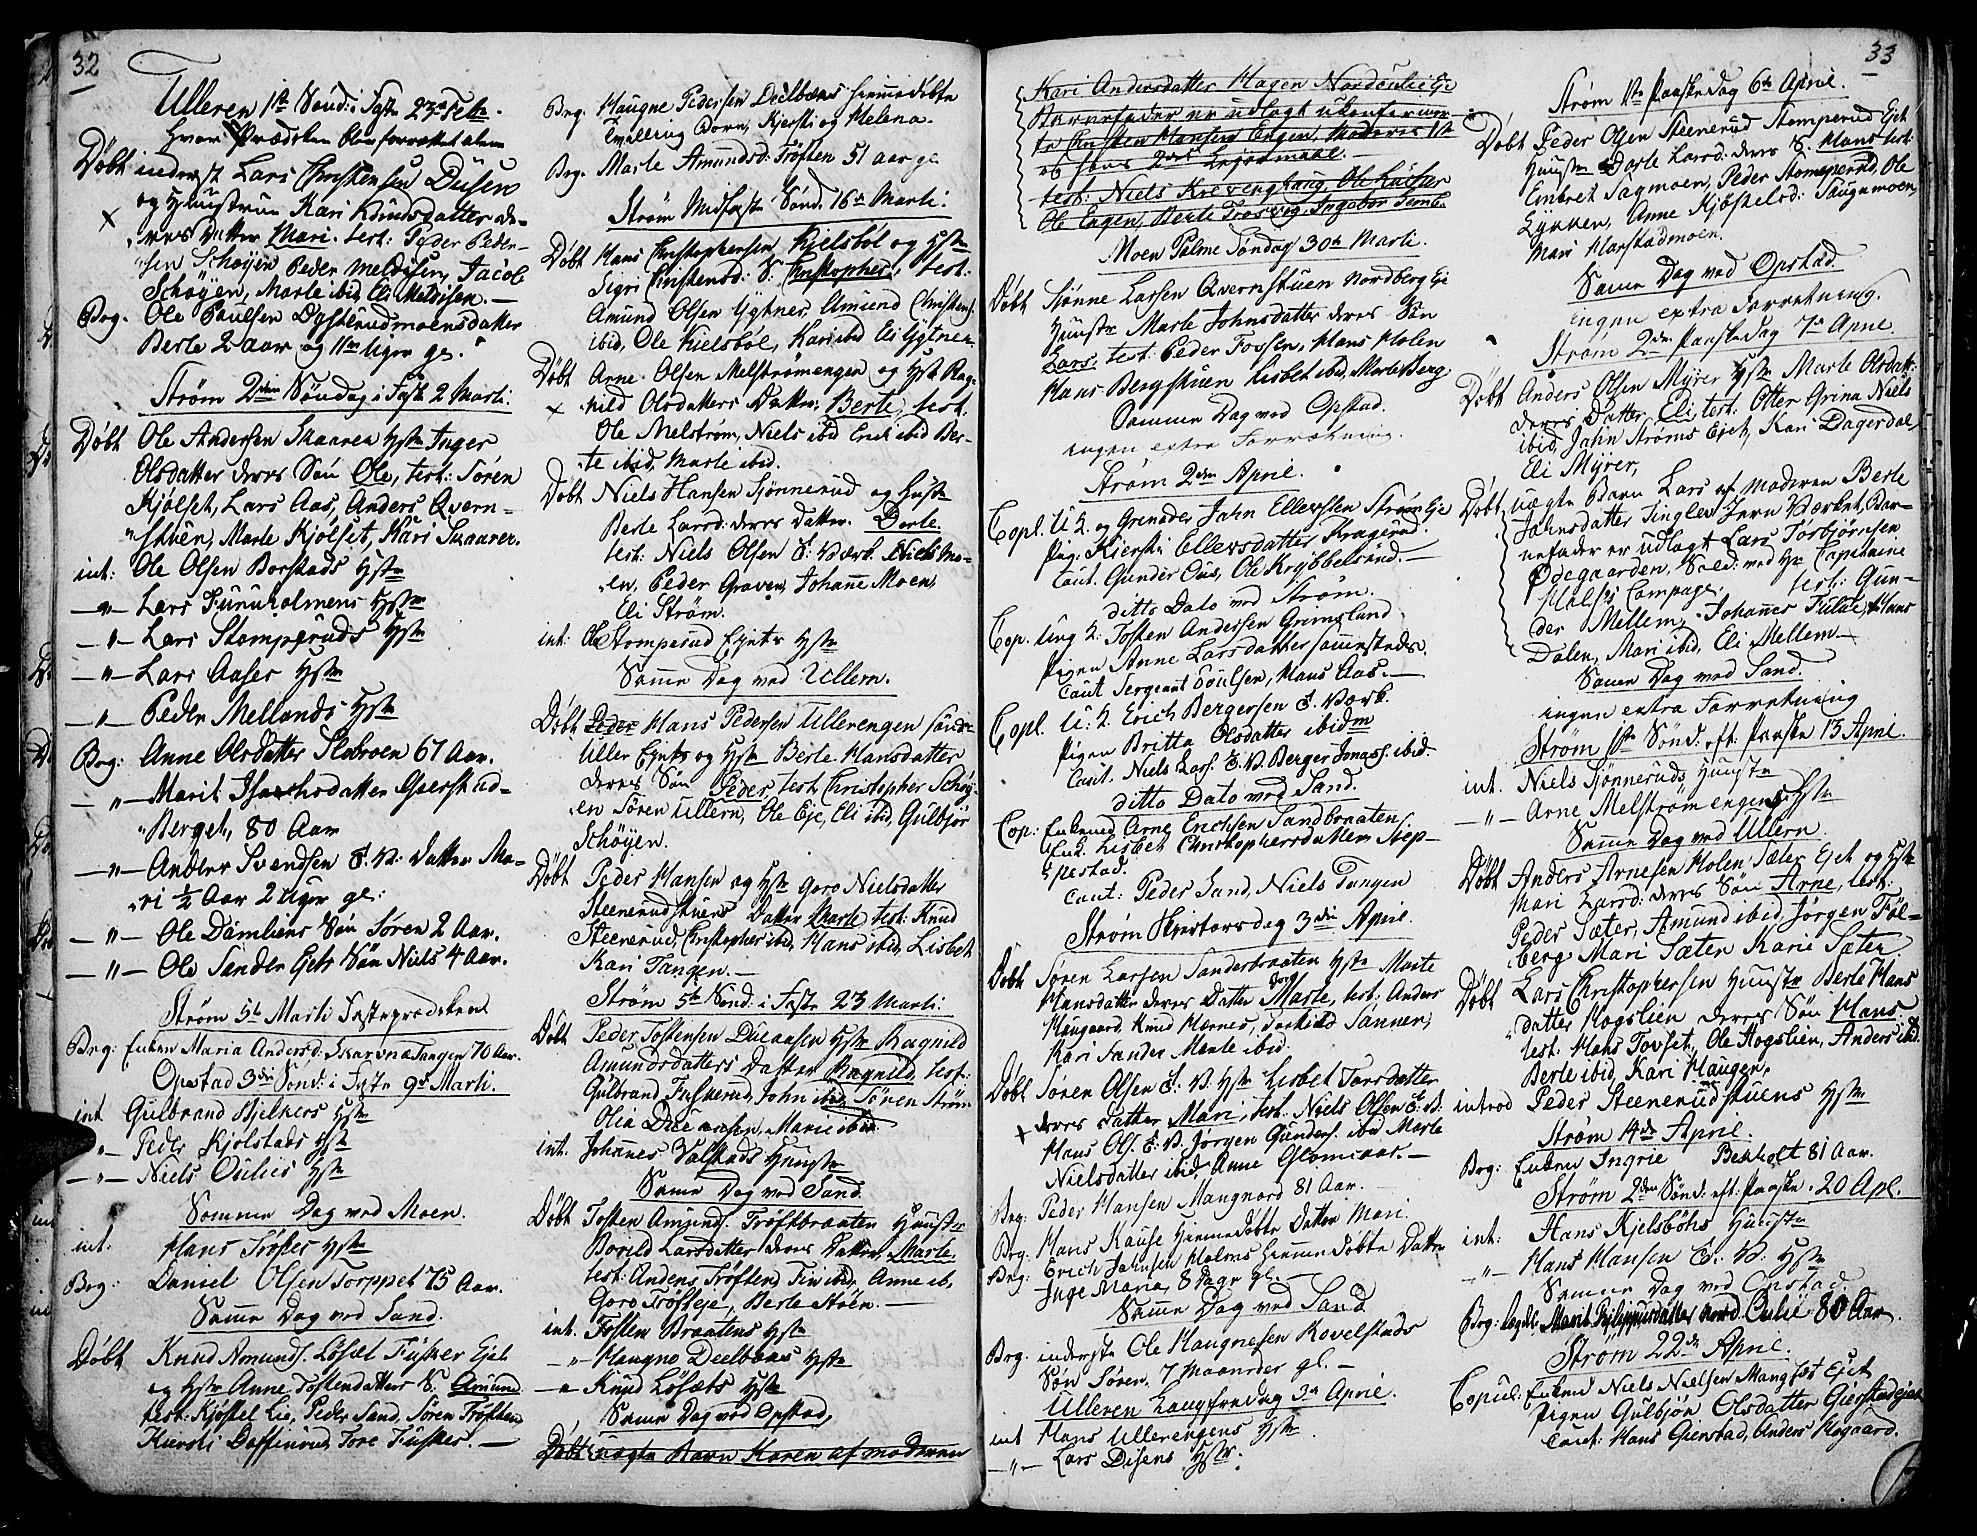 32
Ulleren 1ste Sönd: i Faste 23de Febr.
Hvor Prædiken blev forrettet alene
Döbt inderst Lars Christensen Disen
og Huustrue Kari Knudsdatter de-
res Datter Mari. test: Peder Peder-
sen Schøyen Peder Meldisen, Jacob
Schøyen, Marte ibid, Eli Meldisen. —
Brg. Ole Poulsen Dysterudmoens datter
Berte 2 aar og 11 uger ge.
Strøm 2den Søndag i Faste 2 Marti.
Döbt Ole Andersen Skaaren Hstr Inger
Olsdatter deres Sön Ole, test: Sören
Kjølset, Lars Aas, Anders Qvern-
stuen, Marte Kjølset, Kari Skaarer.
int: Ole Olsen Borstads Hstr
—"— Lars Furuholmens Hstr
—"— Lars Stomperuds Hstr
—"— Lars Aases Hstr
—"— Peder Mellands Hstr
Brg: Anne Olsdatter Slobroen 67 Aar.
—"— Marit Isachsdatter Gierstad-
Berget, 80 Aar
—"— Andrer Svendsen E: V: Datter Ma-
ri ½ Aar 2 uger ge:
—"— Ole Damliens Sön Sören 2 Aar.
—"— Ole Sander Eyes Sön Niels 4 Aar.
Strøm 5te Marti Fasteprædiken
Brg: Enken Maria Andersd: Skarnæs Tangen 70 Aar.
Opstad 3die Sönd: i Faste 9de Marti.
int Gulbrand Hielkers Hstr
" Peder Kjolstads Hstr
—"— Niels Oulies Hstr
Sommer Dag ved Moen.
int: Hans Trøftes Hstr
Brg: Daniel Olsen Torppet 75 Aar.
Samme Dag ved Sand.
Döbt Knud Amunds. Løset Fusker Ejet
og Hstr Anne Tostensdatters S. Amund.
test: Kjøstel Lie, Peder Sand, Sören Trøften
Kiersti Daffinrud, Tore Fusker. —
Brg. Haugne Pedersen Deelbæns hiemmedöbte
Tvilling Börn, Kjersti og Helena.
Brg. Marte Amundsd: Trøften 51 aar ge
Strøm Midfaste Sønd. 16de Marti.
Döbt Hans Christophersen Kjelsböl og Hstr
Sigri Christensd: S. Christopher, test:
Amund Olsen Gytner, Amund Christens.
ibid, Ole Kielsböl, Kari ibid Eli Gytner
Döbt Arne Olsen Melstrømengen og Hstr Rag-
nild Olsdatters Datter Berte, test.
Ole Melstrøm, Niels ibid Erich ibid Ber-
te ibid, Marte ibid.
Döbt Niels Hansen Tjönnerud og Hustr
Berte Larsd: deres datter Dorte.
test: Niels Olsen E: Værk. Niels Mo-
en, Peder Graven, Johane Moen
Eli Strøm.
int: Ole Stomperud Eyets Hstr
Samme Dag ved Ullern.
Döbt Peder Hans Pedersen Ullerengen Sönde
Uller Eyets og Hstr Berte Hansdatter
deres Sön Peder, test Christopher Schøy-
en Sören Ullern, Ole Eje, Eli ibid, Gulbjör
Schöyen.
Döbt Peder Hansen og Hstr Goro Nielsdatter
Steenerudstuens Datter Marte test: Knud
Steenerud, Christopher ibid, Hans ibid, Lisbet
Kari Tangen. —
Strøm 5te Sönd: i Faste 23 Marti:
Döbt Peder Tostensen Dueaasen Hstr Ragnild
Amundsdatters Datter Ragnild test:
Gulbrand Fuskerud, John ibid, Sören Strøm
Olia Dueaasen, Marie ibid
int. Johannes Valstads Huustr
Samme Dag ved Sand.
Döbt Tosten Amunds. Tröftbraaten Huustr
Borild Larsdatter deres Datter Marte.
test: Anders Tröften, Tin ibid, Anne ib,
Goro Trøfteje, Berte Støen. —
int. Tosten Braatens Hstr
—"— Haugno Deelbæns Hstr
—"— Knud Løsæts Hstr
Samme Dag ved Opstad,
Döbt uægte Barn Karen af moderen
33
Kari Andersdatter Hagen Nordoulie Eje
Barnefader er udlagt ukonfirmer-
te Christen Hansen Engen, Moderes 1ste
og hans 2det Lejermaal. —
test: Niels Krevenghaug, Ole Luster
Ole Engen, Berte Trosvig, Ingebor
Moen Palme Söndag 30te Marti.
Döbt Sjönne Larsen Qvernstuen Nordberg Eje
Huustr Marte Johnsdatter deres Sön
Lars, test: Peder Fossen, Hans Holen
Hans Bergstuen Lisbet ibid, Marte Berg.
Sammer Dag ved Opstad.
ingen extra Forretning.
Strøm 2den April.
Copl. U: K. og Grenader Jahn Ellevsten Strøm Eje
Pig. Kiersti Ellevsdatter Kragerud.
Caut. Gunder Ous, Ole Krybbelrund. —
ditto Dato ved Strøm.
Cop. Ung K: Tosten Andersen Grimsland
Pigen Anne Larsdatter sammesteds.
Caut Sergeant Poulsen, Hans Aas. —
Copl. U: K. Erich Bergersen E. Værk.
Pigen Britta Olsdatter ibidm
Caut. Niels Lars. E. V. Berger Jonass. ibid.
ditto Dato ved Sand.
Cop: Enkemd Arne Erichsen Sandbraaten
Enk. Lisbet Christophersdatter Hep-
Epestad.
Caut: Peder Sand, Niels Tangen
Strøm Skiertorsdag 3die April.
Döbt Sören Larsen Sanderbraaten Hstr Marte
Hansdatter deres Datter Marte, test: Anders
Haugaard, Knud Mærnes, Torkild Sanner,
Kari Sander Marte ibid.
Döbt Sören Olsen E: V. Hstr Lisbet Tarsdatter
deres Datter Mari, test. Niels Olsen E: V.
Hans Ols. E: V. Jörgen Gunders. ibid Marte
Nielsdatter ibid, Anne Glomsaas. —
Brg: Peder Hansen Mangnord 81 Aar.
Brg. Hans Kause hiemmedöbte Datter Mari.
Brg: Erich Jahnsen Holms hiemmedöbte Datter
Inge Maria, 8 Dage gl. —
Samme Dag ved Sand
Brg. inderste Ole Haugnesen Rovelstads
Sön Sören. 7 Maaneder gl. —
Ulleren Langfredag 3de April.
int Hans Ullerengens Hstr
—"— Lars Disens Hstr.
Strøm 1ste Paaskedag 6te April.
Döbt Peder Olsen Steenerud Stomperud Ejet
Huustr Dorte Larsd: deres S. Hans test:
Embret Sagmoen, Peder Stomperud, Ole
Lykken, Anne Kjöstelsd: Taugamoen,
Mari Harstadmoen.
Samme Dag ved Opstad.
ingen extra Forretning.
Strøm 2den Paaskedag 7de April
Döbt Anders Olsen Myrer Hstr Marte Olsdatt:
deres Datter Eli, test: Otter Grina Niels
ibid, Jahn Strøms Ejet, Kari Dagerdal,
Eli Myrer,
Döbt uægte Barn Lars af Moderen Berte
Johnsdatter Tingler Jern Værket, Bar-
nefader er udlagt Lars Torbjörnsen
Ødegaarden, Sold: ved Hr Capitaine
Companie. test: Gun-
der Mellem, Johannes Fulu, Hans
Dalen, Mari ibid, Eli Mellem —
Samme Dag ved Sand.
ingen extra Forretning
Strøm 1ste Sönd: eft: Paaske 13 April.
int. Niels Tjönneruds Huustr
—"— Arne Melstrøm engens Hstr
Samme Dag ved Ullern.
Döbt Anders Arnesen Holen, Sæter Ejet og Hstr
Mari Larsd: deres Sön Arne, test:
Peder Sæter, Amund ibid, Jörgen Föl-
berg Mari Sæter Karie Sæter
Döbt Lars Christophersen Huustr Berte Hans
datter Hogslien deres Sön Hans
test: Hans Tovset, Ole Hogslien, Anders ibid.
Berte ibid, Kari Haugen,
introd Peder Steenerudstuens Hstr
Strøm 14de April.
Brg: Enken Ingrie Bekholt 81 Aar.
Strøm 2den Sönd: eft: Paaske. 20 Apl.
int: Hans Kjelsböhs Huustr
—"— Hans Hansen E: V: Hstr
Samme Dag ved Opstad
Brg: Lægdl: Marit Philippusdatter nord Oulie 80 Aar.
Strøm 22de April.
Copul: Enkemd Niels Nielsen Mangset Ejet
Pigen Gulbjör Olsdatter Gierstadejet
Caut: Hans Gierstad, Anders Kogaard.